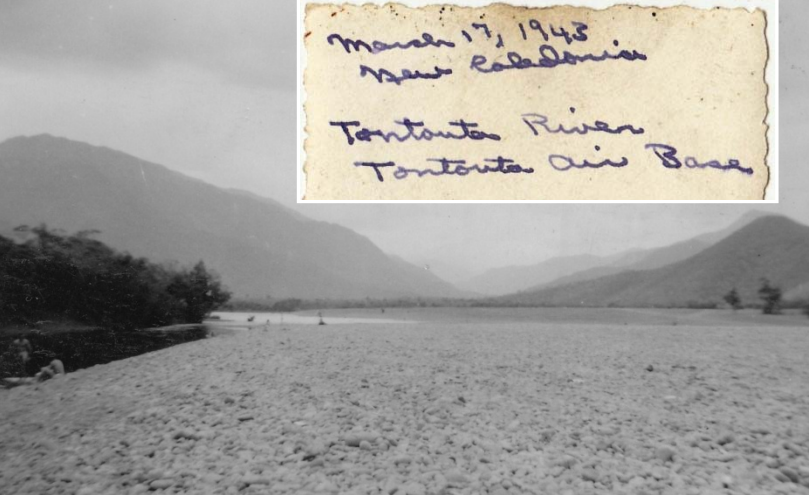 March 17, 1943
New Caledonia
Tontouta River
Tontouta Air Base